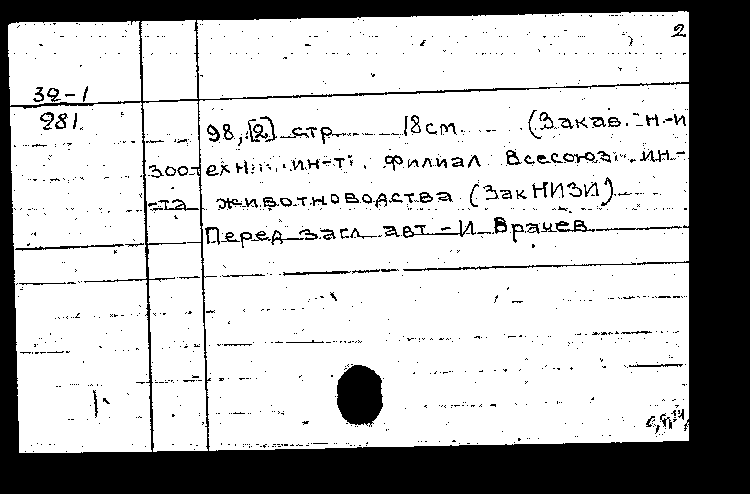 2
32-1
281
98, [2] стр 18см (Закав. н-и
зоотехн. ин-т. Филиал Всесоюз. ин-
-та животноводства (ЗакНИЗИ)
Перед загл авт - И Врачев